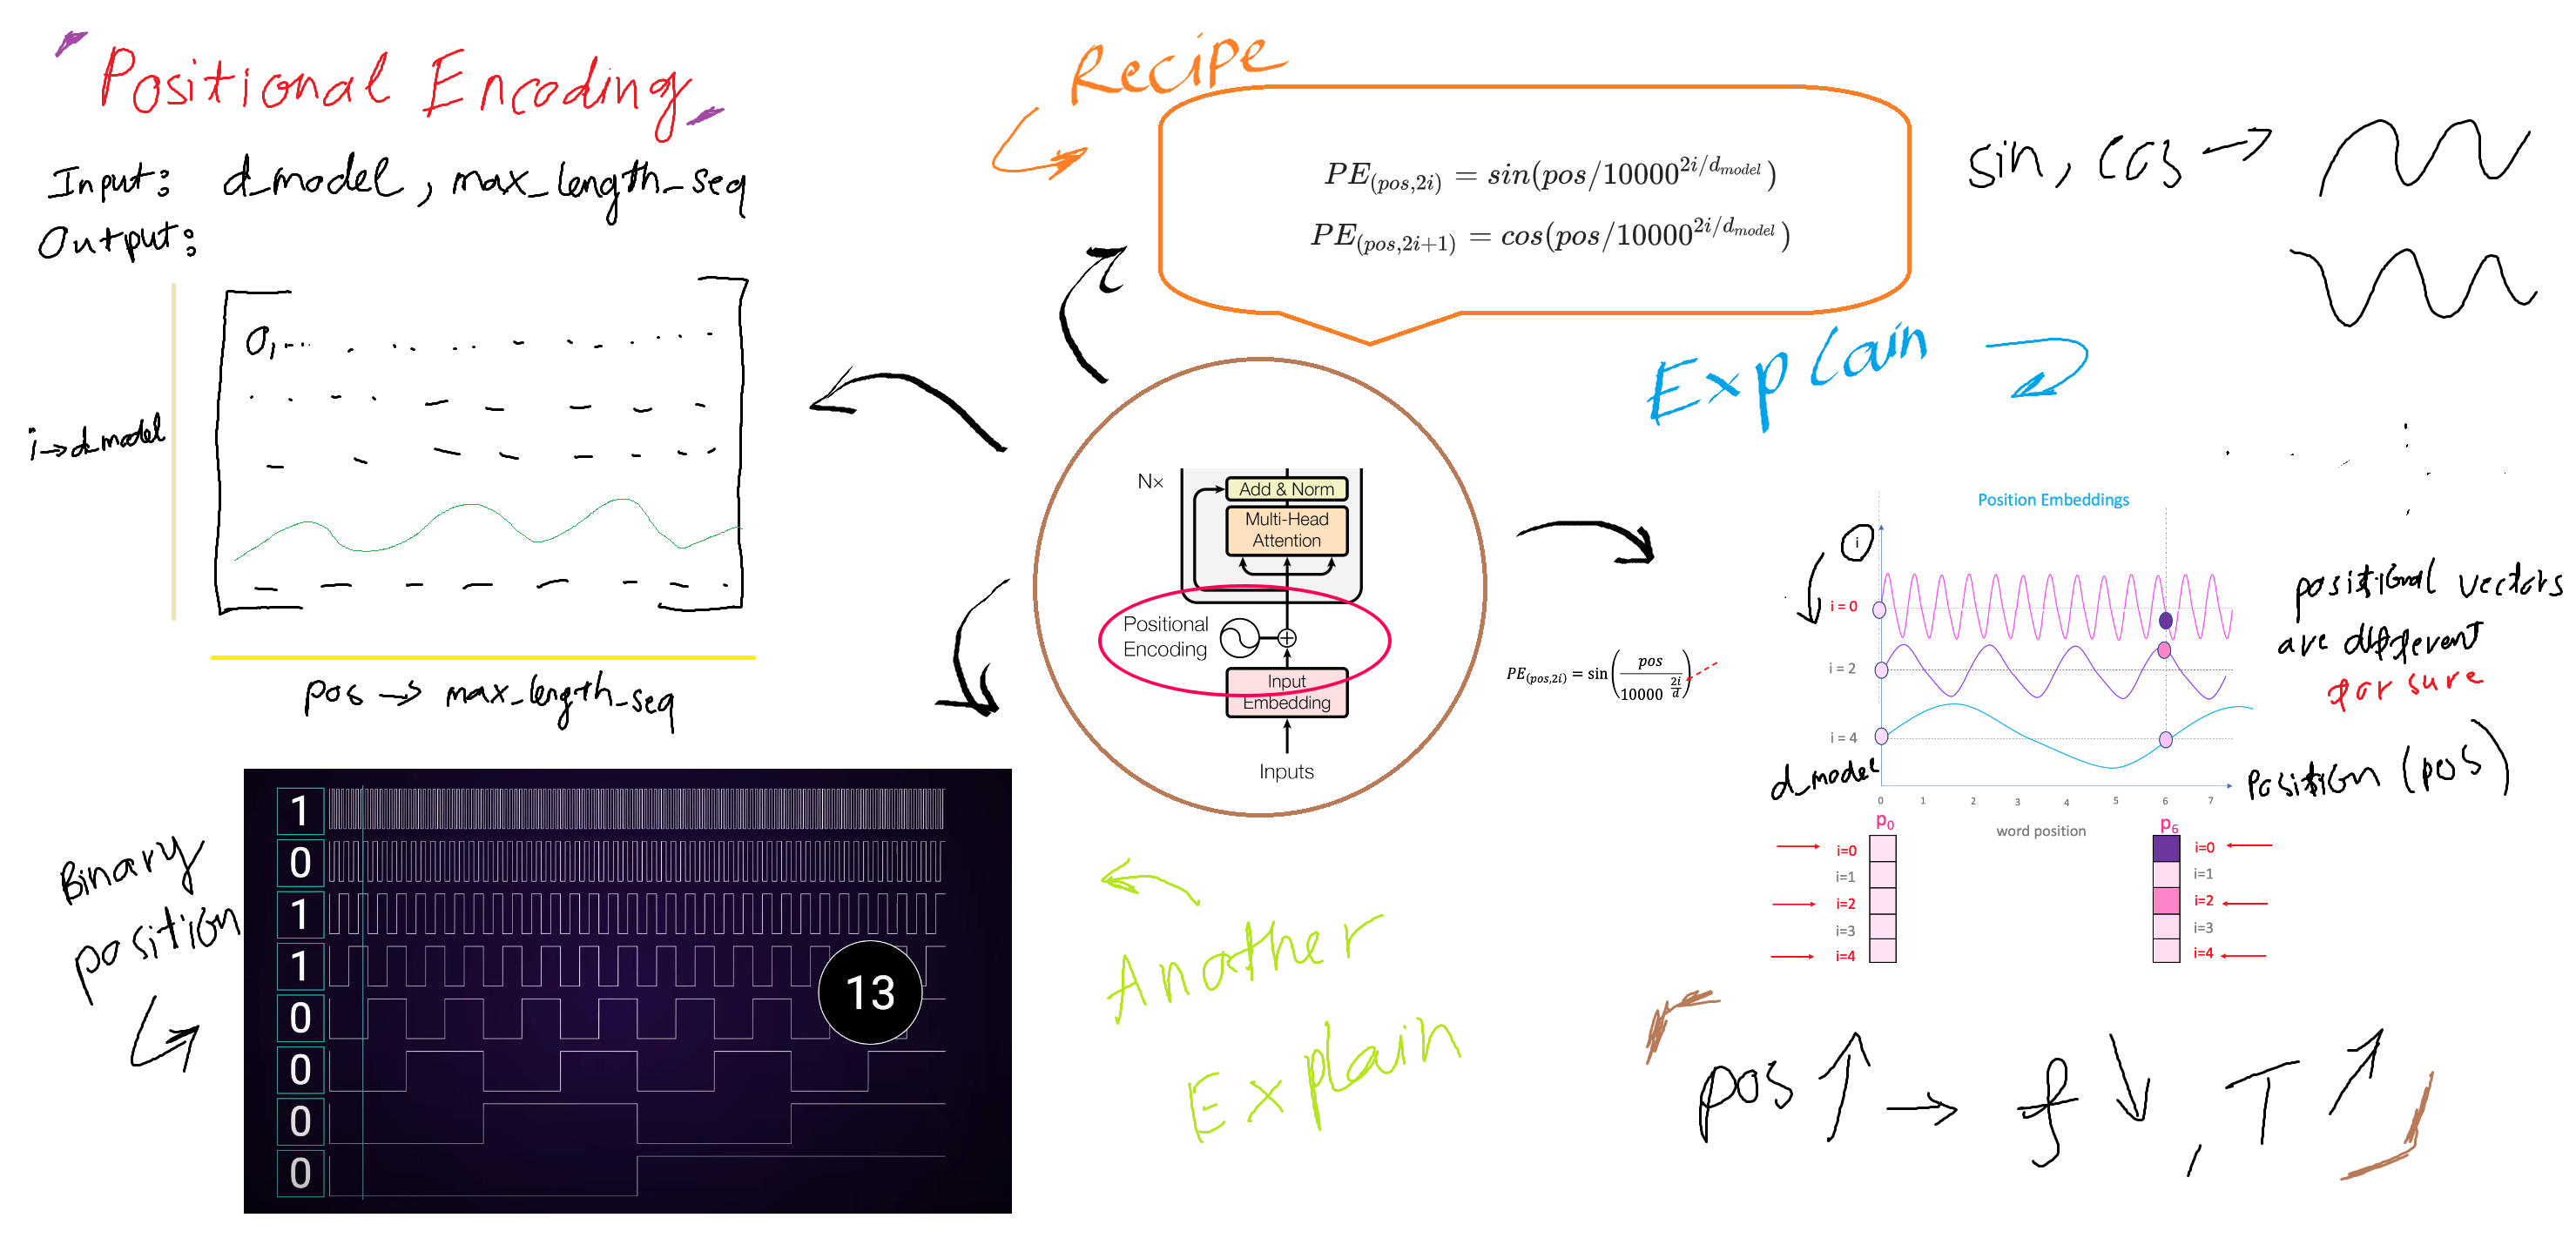 Positional Encoding
Input: d_model, max_length_seq
Output:
0,
i→d_model
pos → max_length_seq
Recipe
PE(pos,2i) = sin(pos/10000^2i/d_model)
PE(pos,2i+1) = cos(pos/10000^2i/d_model)
sin, cos →
Explain
N×
Add & Norm
Multi-Head
Attention
Positional
Encoding
Input
Embedding
Inputs
PE(pos,2i) = sin(pos/10000^2i/d)
Position Embeddings
i
i = 0
i = 2
i = 4
d_model
0 1 2 3 4 5 6 7
Position (pos)
word position
positional vectors
are different
for sure
p0
i=0
i=1
i=2
i=3
i=4
p6
i=0
i=1
i=2
i=3
i=4
pos ↑ → f ↓, T ↗
Another
Explain
Binary
position
1
0
1
1
0
0
0
0
13